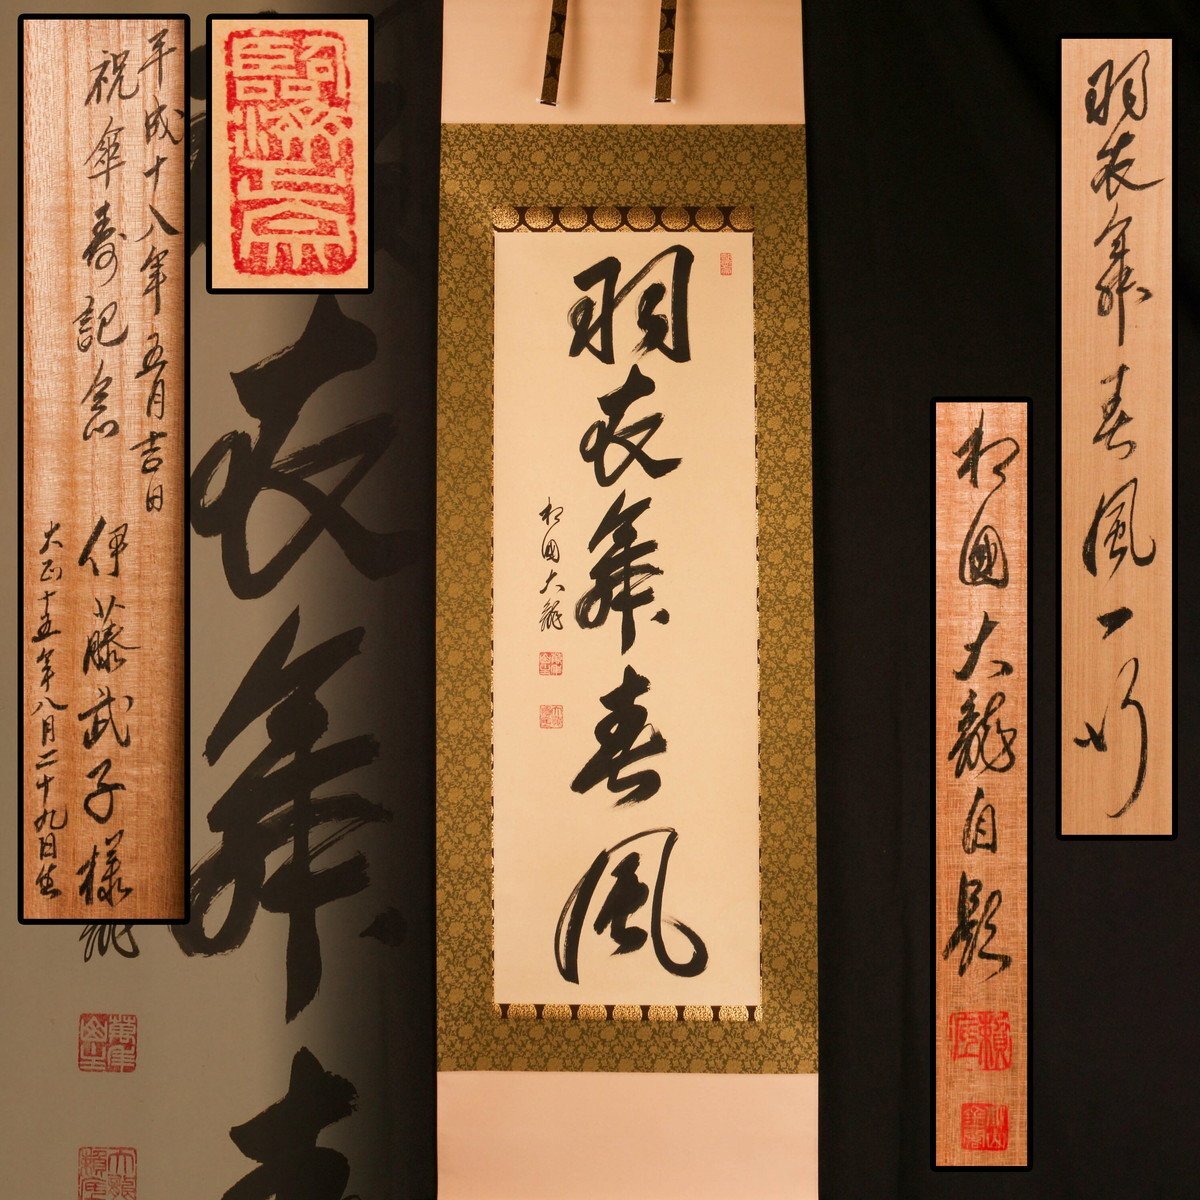 平成十八年五月吉日
祝傘寿記念 伊藤武子様
大正十五年八月二十九日生
羽衣舞春風
相國大龍
羽衣舞春風一行
相國大龍自題